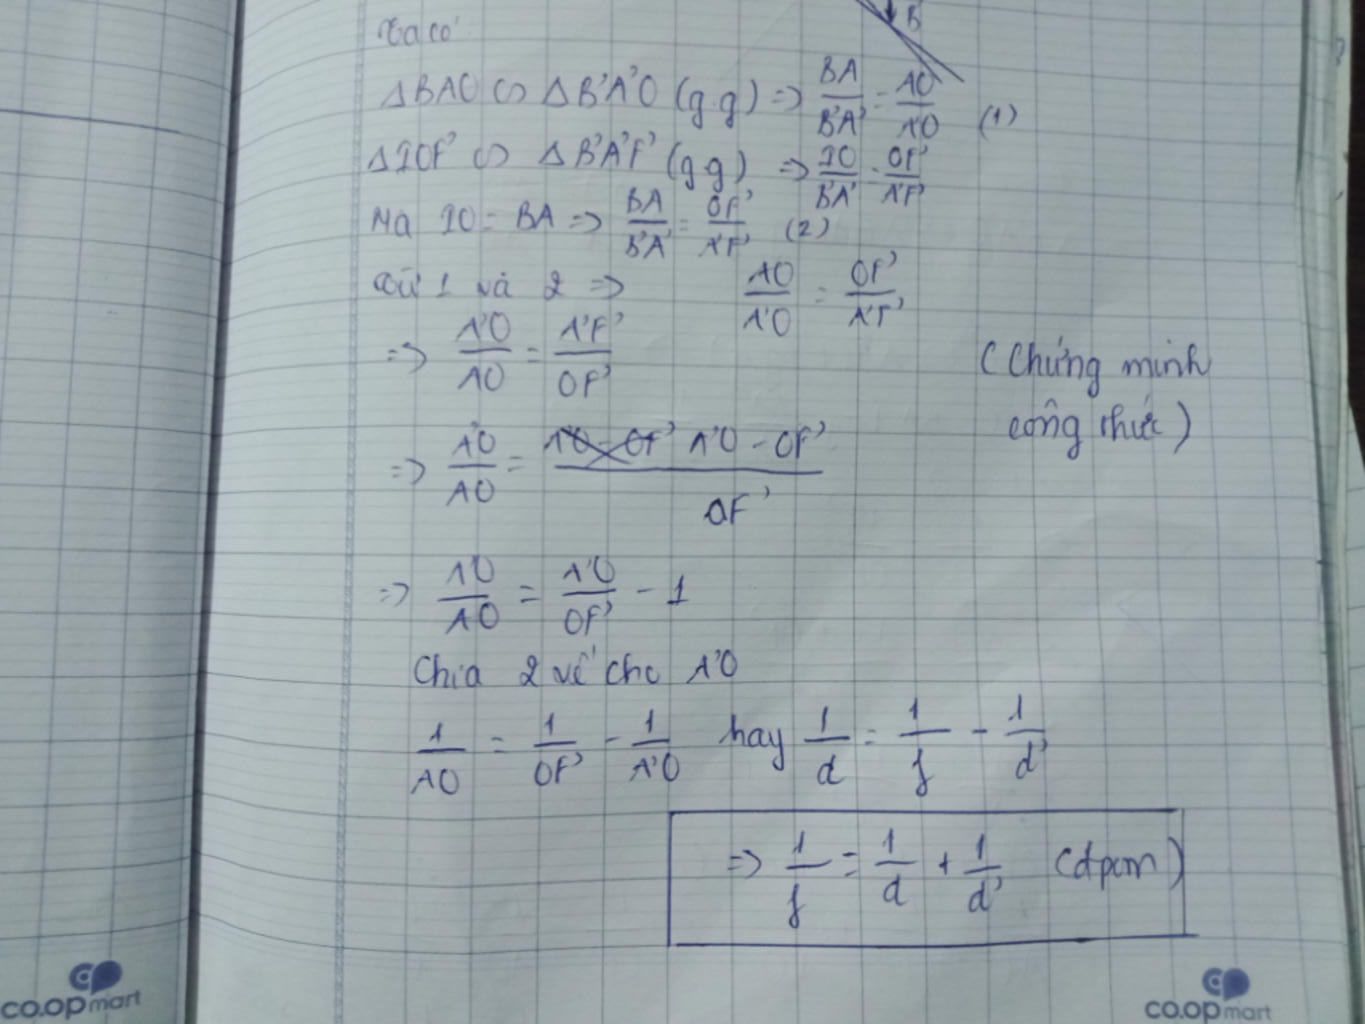 B'
Ta có
∆BAO ∽ ∆B'A'O (g.g) => BA/B'A' = AO/A'O (1)
∆IOF' ∽ ∆B'A'F' (g.g) => IO/B'A' = OF'/A'F'
Mà IO = BA => BA/B'A' = OF'/A'F' (2)
Từ 1 và 2 => AO/A'O = OF'/A'F'
=> A'O/AO = A'F'/OF'
(Chứng minh
công thức)
=> A'O/AO = (A'O - OF')/OF'
=> A'O/AO = A'O/OF' - 1
Chia 2 vế cho A'O
1/AO = 1/OF' - 1/A'O hay 1/d = 1/f - 1/d'
=> 1/f = 1/d + 1/d' (đpcm)
co.opmart
co.opmart